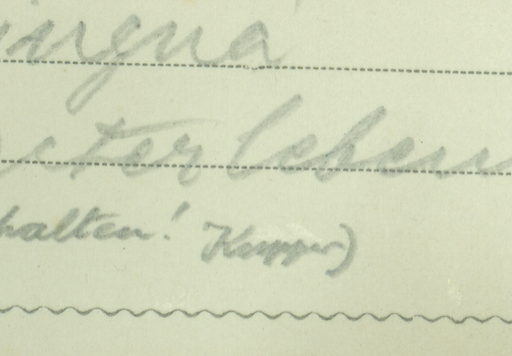 ingua
terleben
halten! Kupper)